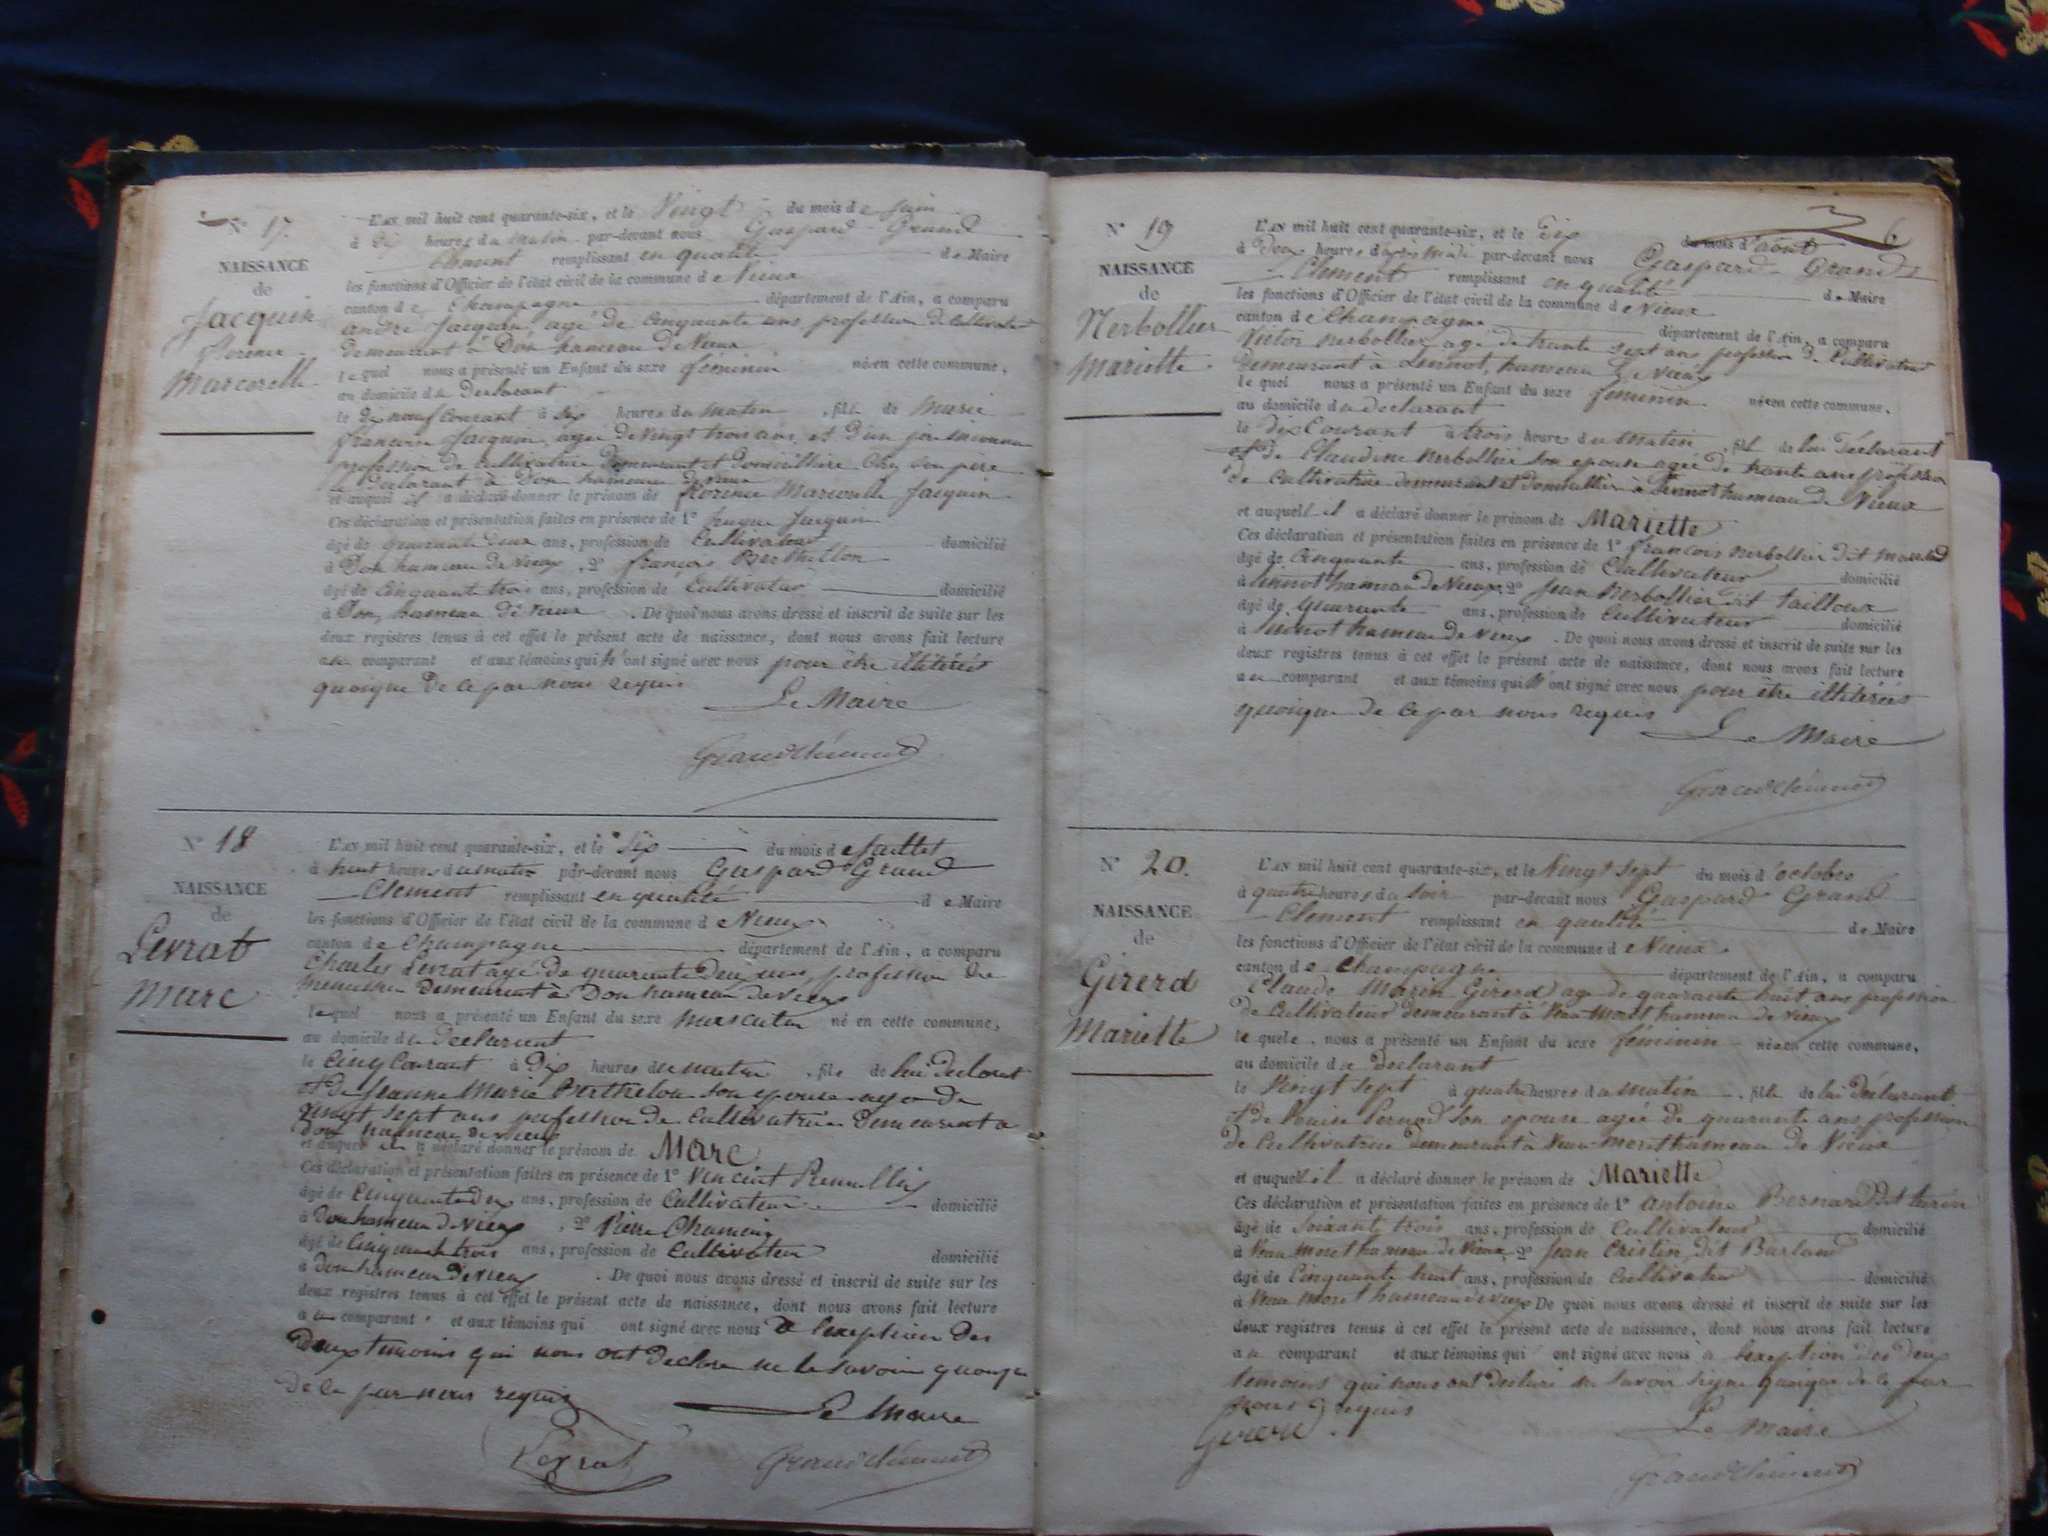 N° 17.
NAISSANCE
de
Jacquin
florence
Marcorelle
L'AN mil huit cent quarante-six, et le Vingt du mois de Juin
à Dix heures du Matin par-devant nous Gaspard Grand
Clement remplissant en qualité de Maire
les fonctions d'Officier de l'état civil de la commune de Vieux
canton de Champagne département de l'Ain, a comparu
andré Jacquin, agé de Cinquante ans profession de Cultivateur
demeurant à Don hameau de Vieux
lequel nous a présenté un Enfant du sexe féminin née en cette commune,
au domicile du Declarant
le dix neuf Courant à Six heures du Matin, fille de Marie
francoise Jacquin agee de Vingt trois ans, et d'un père inconnu
profession de Cultivatrice demeurant et domiciliée chez son père
le Déclarant à Don hameau de Vieux
et auquel il a déclaré donner le prénom de florence Marcorelle Jacquin
Ces déclaration et présentation faites en présence de 1° Jacquin
âgé de quarante deux ans, profession de Cultivateur domicilié
à Don hameau de Vieux, 2° françois Berthillon
âgé de Cinquante trois ans, profession de Cultivateur domicilié
à Don, hameau de vieux. De quoi nous avons dressé et inscrit de suite sur les
deux registres tenus à cet effet le présent acte de naissance, dont nous avons fait lecture
au comparant et aux témoins qui n'ont signé avec nous pour être illitérés
quoique de ce par nous requis
Le Maire
Grandclément
N° 18
NAISSANCE
de
Levrat
Marc
L'AN mil huit cent quarante-six, et le Six du mois de Juillet
à huit heures du matin par-devant nous Gaspard Grand
Clement remplissant en qualité de Maire
les fonctions d'Officier de l'état civil de la commune de Vieux
canton de Champagne département de l'Ain, a comparu
Charles Levrat agé de quarante deux ans, profession de
demeurant à Don hameau de Vieux
lequel nous a présenté un Enfant du sexe masculin né en cette commune,
au domicile du Declarant
le Cinq Courant à Dix heures du matin, fils de lui declarant
et de Jeanne Marie Berthelon son epouse agée de
vingt sept ans profession de Cultivatrice Demeurant a
Don hameau de vieux
et auquel il a déclaré donner le prénom de Marc
Ces déclaration et présentation faites en présence de 1° Vincent
âgé de Cinquante deux ans, profession de Cultivateur domicilié
à Don hameau de Vieux, 2° Pierre
âgé de Cinquante trois ans, profession de Cultivateur domicilié
à Don hameau de Vieux. De quoi nous avons dressé et inscrit de suite sur les
deux registres tenus à cet effet le présent acte de naissance, dont nous avons fait lecture
au comparant et aux témoins qui ont signé avec nous a l'exeption des
deux temoins qui nous ont declaré ne le savoir quoique
de ce par nous requis
Le Maire
Levrat Grandclément
6
N° 19
NAISSANCE
de
Nerbollier
Mariette
L'AN mil huit cent quarante-six, et le Dix du mois d'aout
à Deux heures d'après midi par-devant nous Gaspard Grand
Clement remplissant en qualité de Maire
les fonctions d'Officier de l'état civil de la commune de Vieux
canton de Champagne département de l'Ain, a comparu
Victor Nerbollier agé de trente sept ans profession de Cultivateur
demeurant à Linnot, hameau de Vieux
lequel nous a présenté un Enfant du sexe féminin née en cette commune,
au domicile du declarant
le Dix Courant à trois heures du matin fille de lui Déclarant
et de Claudine Nerbollier son epouse agée de trente ans profession
de Cultivatrice demeurant et domiciliée à Linnot hameau de Vieux
et auquel il a déclaré donner le prénom de Mariette
Ces déclaration et présentation faites en présence de 1° francois Nerbollier dit
âgé de Cinquante ans, profession de Cultivateur domicilié
à Linnot hameau de Vieux, 2° Jean Nerbollier dit tailloux
âgé de Quarante ans, profession de Cultivateur domicilié
à Linnot hameau de Vieux. De quoi nous avons dressé et inscrit de suite sur les
deux registres tenus à cet effet le présent acte de naissance, dont nous avons fait lecture
au comparant et aux témoins qui n'ont signé avec nous pour être illitérés
quoique de ce par nous requis
Le Maire
Grandclément
N° 20.
NAISSANCE
de
Girerd
Mariette
L'AN mil huit cent quarante-six, et le Vingt sept du mois d'octobre
à quatre heures du Soir par-devant nous Gaspard Grand
Clement remplissant en qualité de Maire
les fonctions d'Officier de l'état civil de la commune de Vieux
canton de Champagne département de l'Ain, a comparu
Claude Marin Girerd age de quarante huit ans profession
de Cultivateur demeurant à Vaux-Moret hameau de Vieux
lequel nous a présenté un Enfant du sexe féminin née en cette commune,
au domicile du declarant
le Vingt sept à quatre heures du matin, fille de lui déclarant
et de Louise son epouse agée de quarante ans profession
de Cultivatrice demeurant à Vaux-moret hameau de Vieux
et auquel il a déclaré donner le prénom de Mariette
Ces déclaration et présentation faites en présence de 1° antoine Bernard dit turin
âgé de soixante trois ans, profession de Cultivateur domicilié
à Vaux Moret hameau de Vieux, 2° Jean Cristin dit Burland
âgé de Cinquante huit ans, profession de Cultivateur domicilié
à Vaux Moret hameau de Vieux De quoi nous avons dressé et inscrit de suite sur les
deux registres tenus à cet effet le présent acte de naissance, dont nous avons fait lecture
au comparant et aux témoins qui ont signé avec nous a l'exeption des deux
temoins qui nous ont declaré ne savoir signe quoique de ce par
nous requis
Girerd. Le Maire
Grandclément